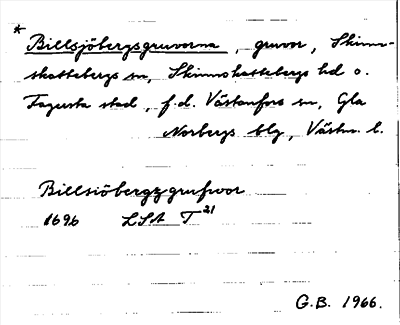 * Billsjöbergsgruvorna, gruvor, Skinn-
skattebergs sn, Skinnskattebergs hd o.
Fagersta stad, f.d. Västanfors sn, Gla
Norbergs blg, Västm. l.
Billsiöbergz grufwor
1696 LSA T 21
G.B. 1966.